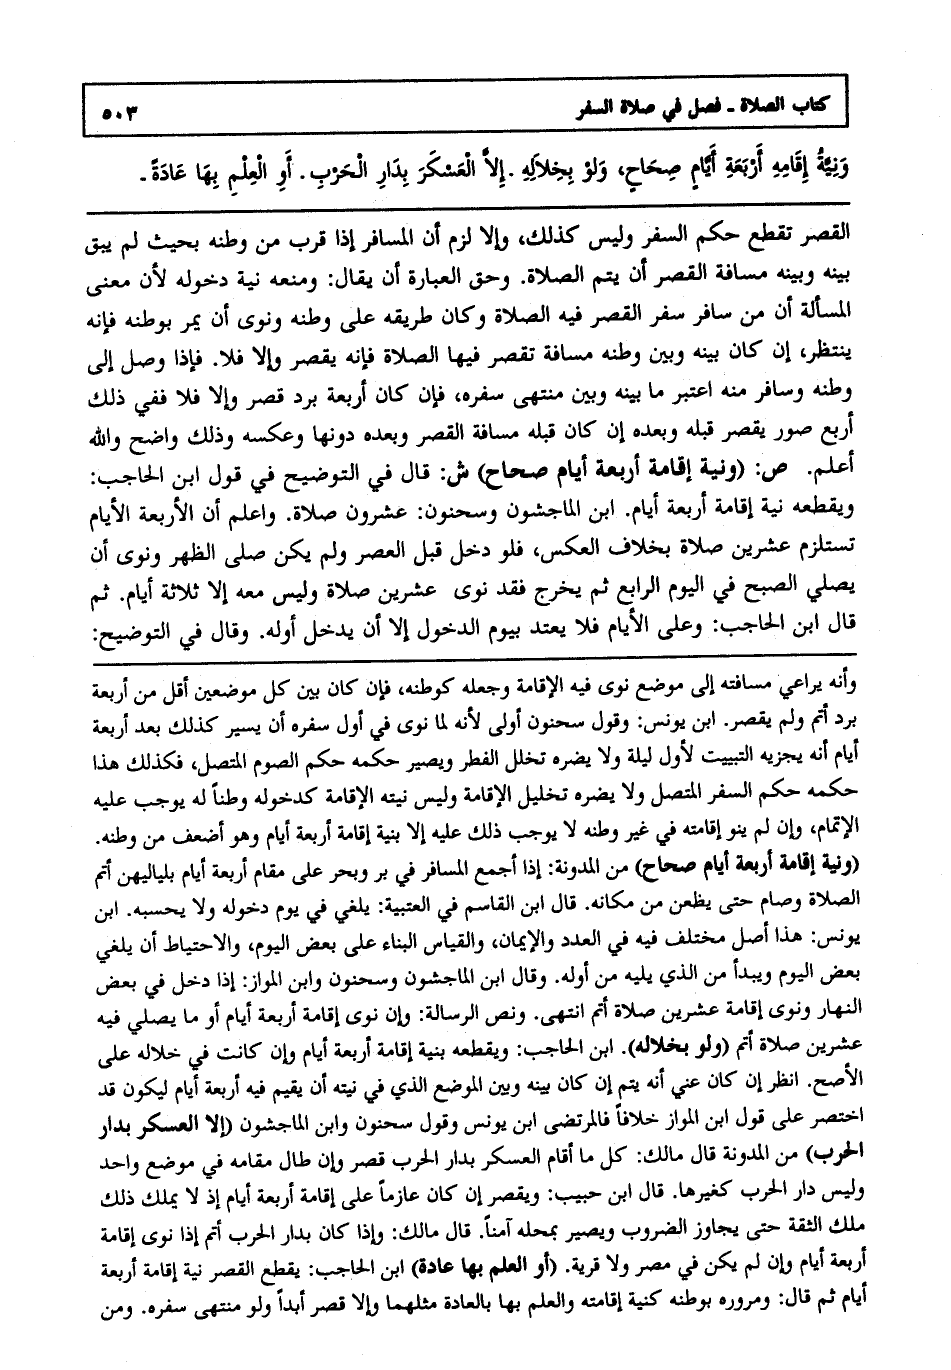 كتاب الصلاة ـ فصل في صلاة السفر ٥٠٣
وَنِيَّةُ إِقَامِهِ أَرْبَعَةِ أَيَّامٍ صِحَاحٍ، وَلَوْ بِخِلاَلِهِ . إِلاَّ الْعَسْكَرَ بِدَارِ الْحَرْبِ . أَوِ الْعِلْمِ بِهَا عَادَةً ـ
القصر تقطع حكم السفر وليس كذلك، وإلا لزم أن المسافر إذا قرب من وطنه بحيث لم يبق
بينه وبينه مسافة القصر أن يتم الصلاة. وحق العبارة أن يقال: ومنعه نية دخوله لأن معنى
المسألة أن من سافر سفر القصر فيه الصلاة وكان طريقه على وطنه ونوى أن يمر بوطنه فإنه
ينتظر، إن كان بينه وبين وطنه مسافة تقصر فيها الصلاة فإنه يقصر وإلا فلا. فإذا وصل إلى
وطنه وسافر منه اعتبر ما بينه وبين منتهى سفره، فإن كان أربعة برد قصر وإلا فلا ففي ذلك
أربع صور يقصر قبله وبعده إن كان قبله مسافة القصر وبعده دونها وعكسه وذلك واضح والله
أعلم. ص: (ونية إقامة أربعة أيام صحاح) ش: قال في التوضيح في قول ابن الحاجب:
ويقطعه نية إقامة أربعة أيام. ابن الماجشون وسحنون: عشرون صلاة. واعلم أن الأربعة الأيام
تستلزم عشرين صلاة بخلاف العكس، فلو دخل قبل العصر ولم يكن صلى الظهر ونوى أن
يصلي الصبح في اليوم الرابع ثم يخرج فقد نوى عشرين صلاة وليس معه إلا ثلاثة أيام. ثم
قال ابن الحاجب: وعلى الأيام فلا يعتد بيوم الدخول إلا أن يدخل أوله. وقال في التوضيح:
وأنه يراعي مسافته إلى موضع نوى فيه الإقامة وجعله كوطنه، فإن كان بين كل موضعين أقل من أربعة
برد أتم ولم يقصر. ابن يونس: وقول سحنون أولى لأنه لما نوى في أول سفره أن يسير كذلك بعد أربعة
أيام أنه يجزيه التبييت لأول ليلة ولا يضره تخلل الفطر ويصير حكمه حكم الصوم المتصل، فكذلك هذا
حكمه حكم السفر المتصل ولا يضره تخليل الإقامة وليس نيته الإقامة كدخوله وطناً له يوجب عليه
الإتمام، وإن لم ينو إقامته في غير وطنه لا يوجب ذلك عليه إلا بنية إقامة أربعة أيام وهو أضعف من وطنه.
(ونية إقامة أربعة أيام صحاح) من المدونة: إذا أجمع المسافر في بر وبحر على مقام أربعة أيام بلياليهن أتم
الصلاة وصام حتى يظعن من مكانه. قال ابن القاسم في العتبية: يلغي في يوم دخوله ولا يحسبه. ابن
يونس: هذا أصل مختلف فيه في العدد والإيمان، والقياس البناء على بعض اليوم، والاحتياط أن يلغي
بعض اليوم ويبدأ من الذي يليه من أوله. وقال ابن الماجشون وسحنون وابن المواز: إذا دخل في بعض
النهار ونوى إقامة عشرين صلاة أتم انتهى. ونص الرسالة: وإن نوى إقامة أربعة أيام أو ما يصلي فيه
عشرين صلاة أتم (ولو بخلاله). ابن الحاجب: ويقطعه بنية إقامة أربعة أيام وإن كانت في خلاله على
الأصح. انظر إن كان عني أنه يتم إن كان بينه وبين الموضع الذي في نيته أن يقيم فيه أربعة أيام ليكون قد
اختصر على قول ابن المواز خلافاً فالمرتضى ابن يونس وقول سحنون وابن الماجشون (إلا العسكر بدار
الحرب) من المدونة قال مالك: كل ما أقام العسكر بدار الحرب قصر وإن طال مقامه في موضع واحد
وليس دار الحرب كغيرها. قال ابن حبيب: ويقصر إن كان عازماً على إقامة أربعة أيام إذ لا يملك ذلك
ملك الثقة حتى يجاوز الضروب ويصير بمحله آمناً. قال مالك: وإذا كان بدار الحرب أتم إذا نوى إقامة
أربعة أيام وإن لم يكن في مصر ولا قرية. (أو العلم بها عادة) ابن الحاجب: يقطع القصر نية إقامة أربعة
أيام ثم قال: ومروره بوطنه كنية إقامته والعلم بها بالعادة مثلهما وإلا قصر أبداً ولو منتهى سفره. ومن